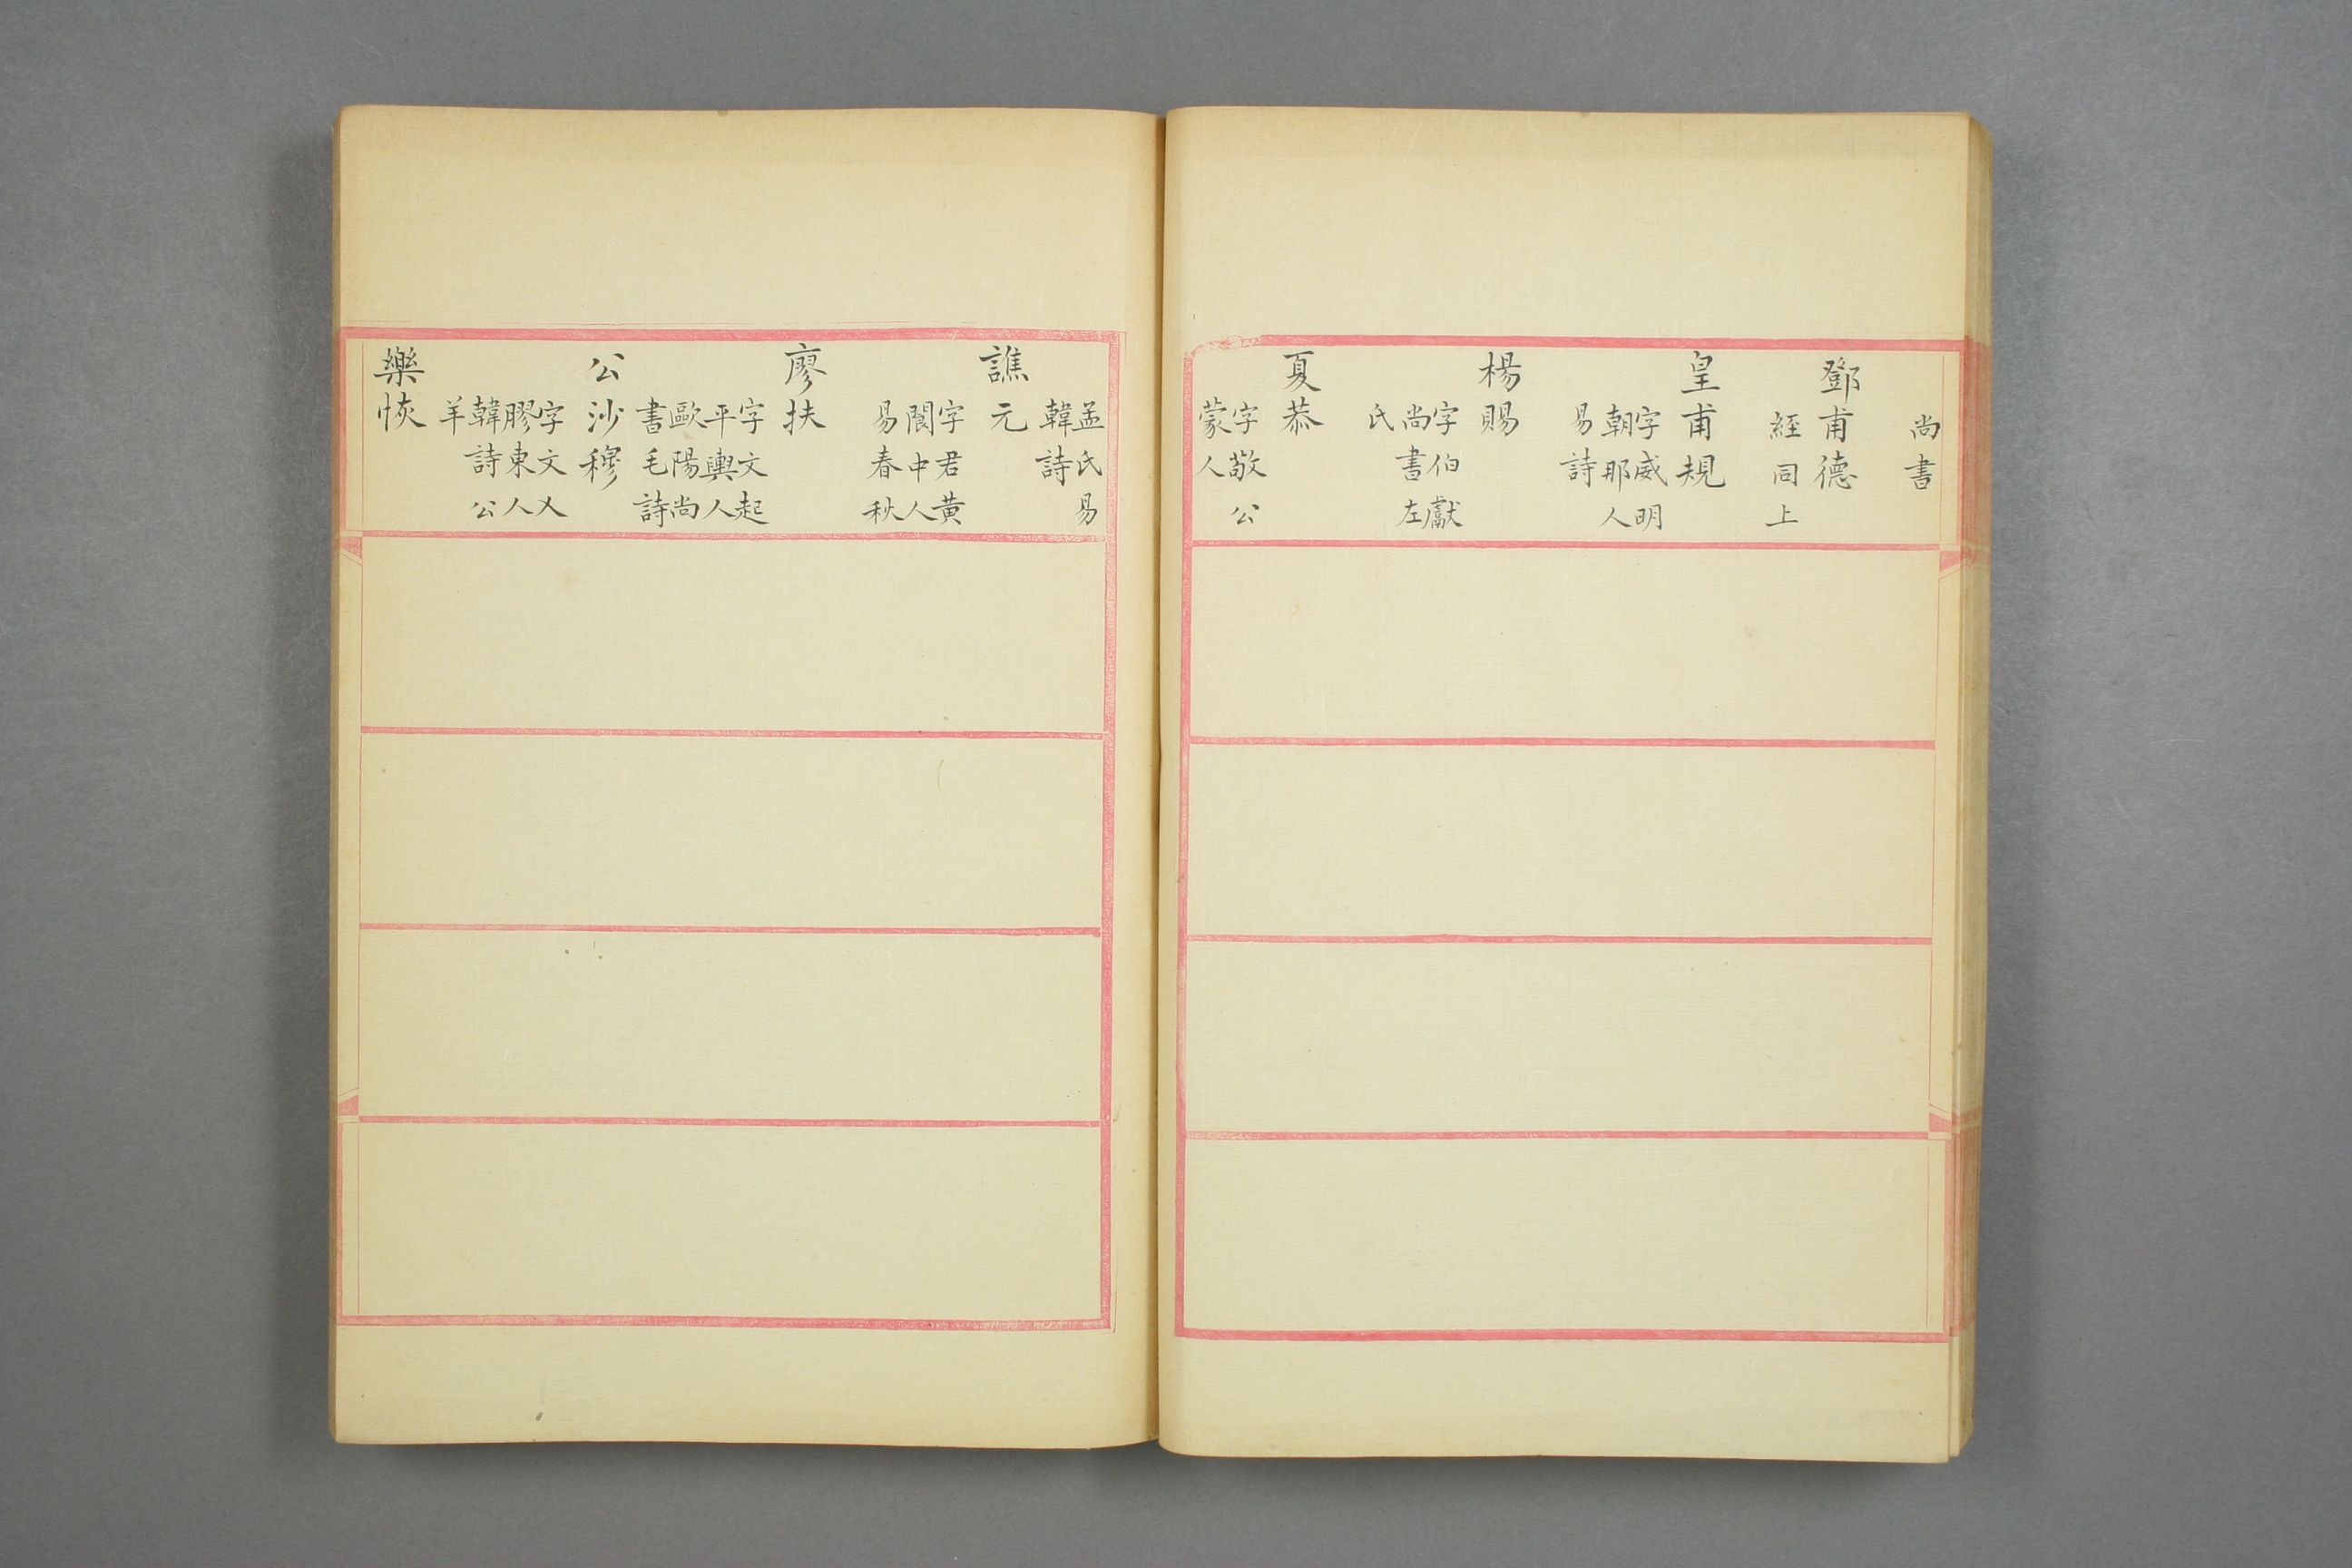 尚書
鄧甫德
經同上
皇甫規
字威明
朝那人
易詩
楊賜
字伯獻
尚書左
氏
夏恭
字敬公
蒙人
孟氏易
韓詩
譙元
字君黃
閬中人
易春秋
廖扶
字文起
平輿人
歐陽尚
書毛詩
公沙穆
字文乂
膠東人
韓詩公
羊
樂恢